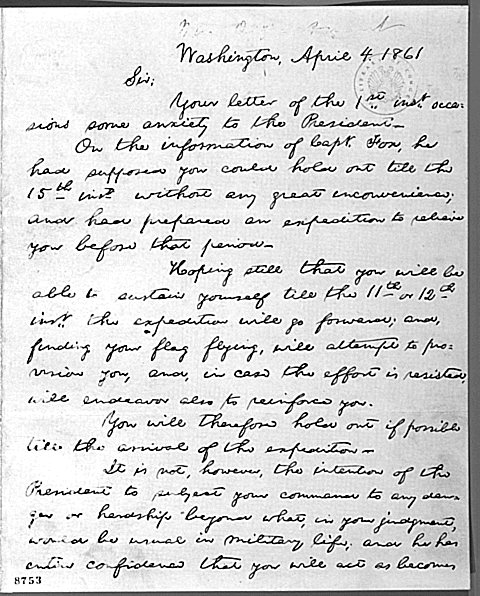 Washington, April 4. 1861
Sir:
Your letter of the 1st inst. occa-
sions some anxiety to the President—
On the information of Capt. Fox, he
had supposed you could hold out till the
15th inst. without any great inconvenience;
and had prepared an expedition to relieve
you before that period—
Hoping still that you will be
able to sustain yourself till the 11th or 12th
inst. the expedition will go forward; and,
finding your flag flying, will attempt to pro-
vision you, and, in case the effort is resisted,
will endeavor also to reinforce you.
You will therefore hold out if possible
till the arrival of the expedition—
It is not, however, the intention of the
President to subject your command to any dan-
ger or hardship beyond what, in your judgment,
would be usual in military life; and he has
entire confidence that you will act as becomes
8753